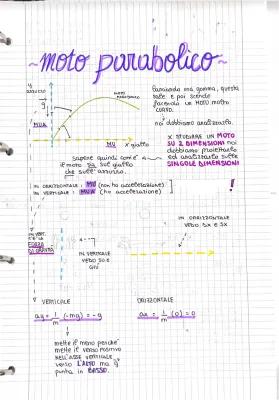 ~moto parabolico~
y
azzurro
MOTO
PARABOLICO
MUA
MU
x giallo
lanciando una gomma, questa
sale e poi scende
facendo un MOTO molto
CURVO.
noi dobbiamo analizzarlo.
x STUDIARE UN MOTO
SU 2 DIMENSIONI noi
dobbiamo proiettarlo
ed analizzarlo sulle
SINGOLE DIMENSIONI
!
sapere quindi com'è
il moto sia sul giallo
che sull'azzurro.
IN ORIZZONTALE: MU (non ho accelerazione)
IN VERTICALE: MUA (ho accelerazione)
IN VERT.
C'È LA
FORZA
DI GRAVITÀ
IN VERTICALE
VEDO SU E
GIÙ
IN ORIZZONTALE
VEDO DX E SX
VERTICALE
ORIZZONTALE
ay = 1/m (-mg) = -g
ax = 1/m (0) = 0
mette il meno perché
mette il verso positivo
NELL'ASSE VERTICALE
verso L'ALTO ma g
punta in BASSO.